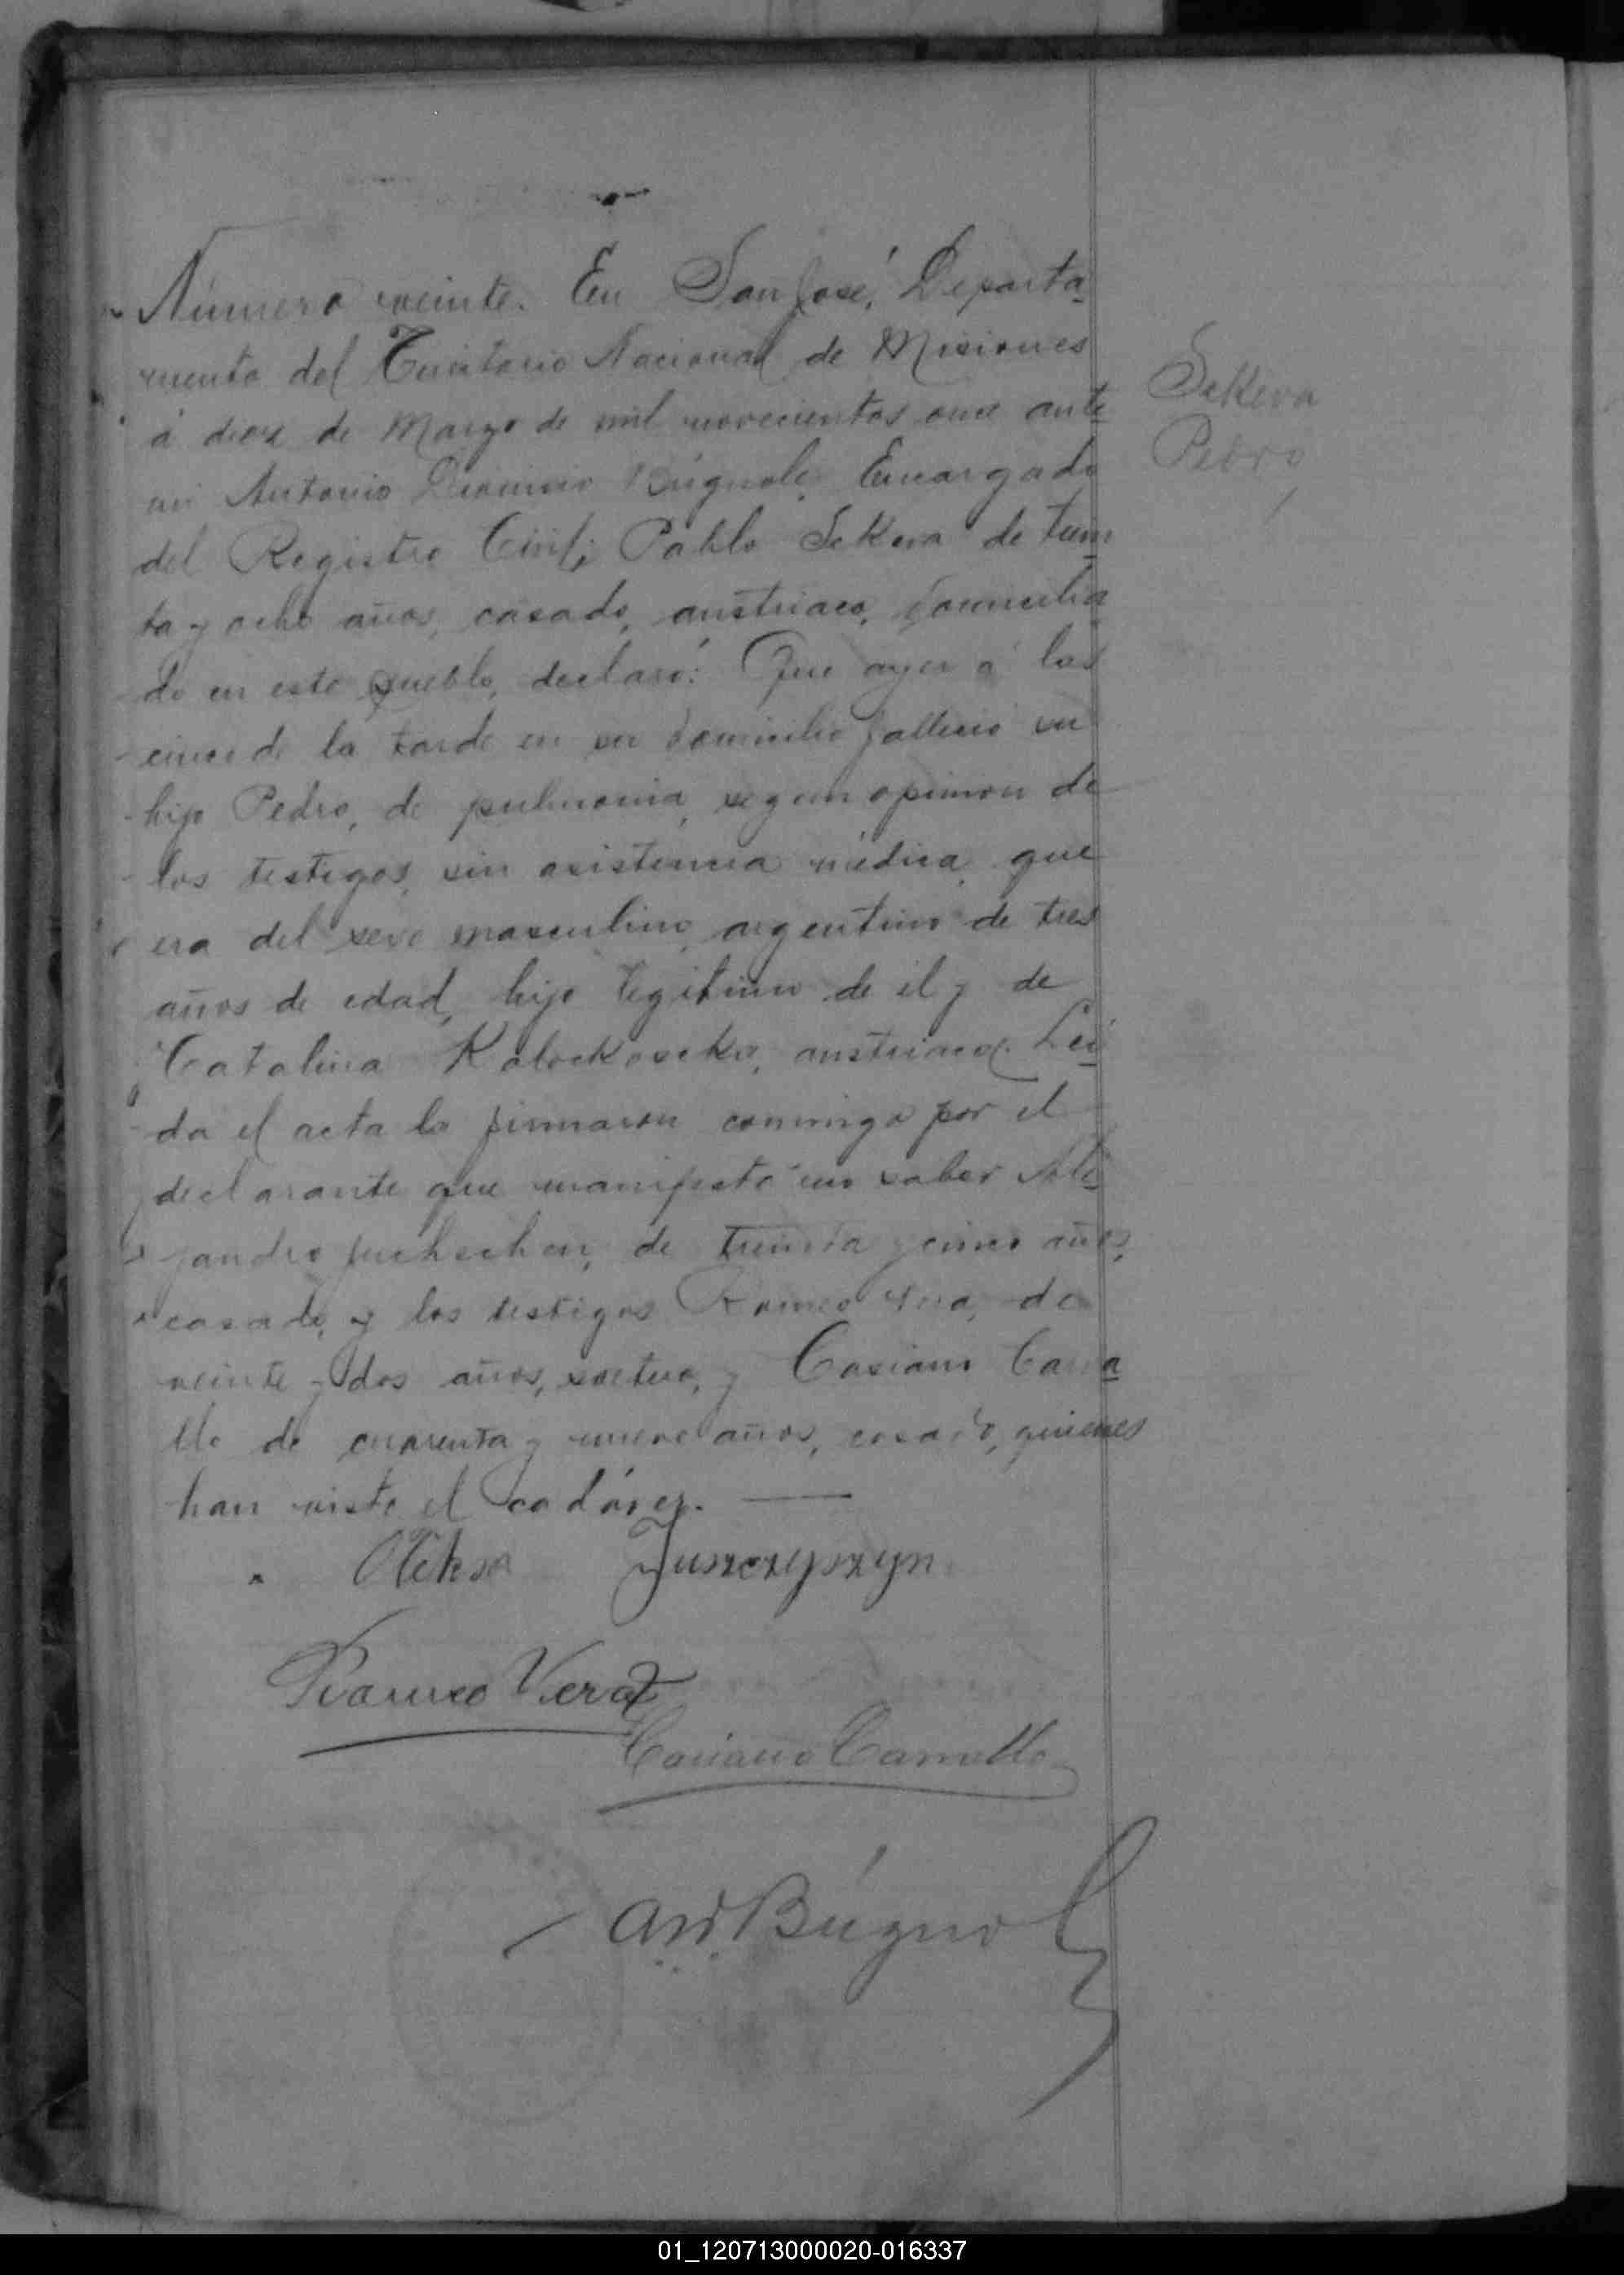 Número veinte. En San José, Departa-
mento del Territorio Nacional de Misiones
á diez de Marzo de mil novecientos once ante
mi Antonio Dionisio Búgnole, Encargado
del Registro Civil; Pablo Sekera de trein-
ta y ocho años, casado, austriaco, domicilia
do en este pueblo, declaró: Que ayer á las
cinco de la tarde en su domicilio falleció su
hijo Pedro, de pulmonia, segun opinion de
los testigos, sin asistencia médica, que
era del sexo masculino, argentino de tres
años de edad, hijo legitimo de él y de
Catalina austriaca. Lei-
da el acta la firmaron conmigo por el
declarante que manifestó no saber Ale-
jandro de treinta y cinco años,
casado, y los testigos Romeo Vera, de
veinte y dos años, soltero, y Casiano Carra
llo de cuarenta y nueve años, casado, quienes
han visto el cadáver.
Oleksa Juszczyszyn
Romeo Vera
Casiano Carrallo
Sekera
Pedro
01_120713000020-016337